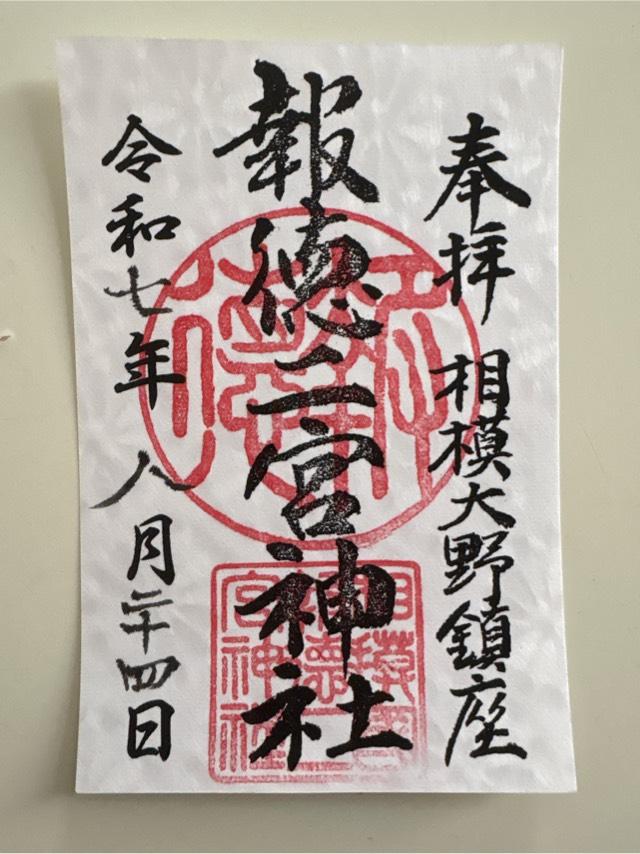 奉拝 相模大野鎮座
報徳二宮神社
令和七年 八月二十四日